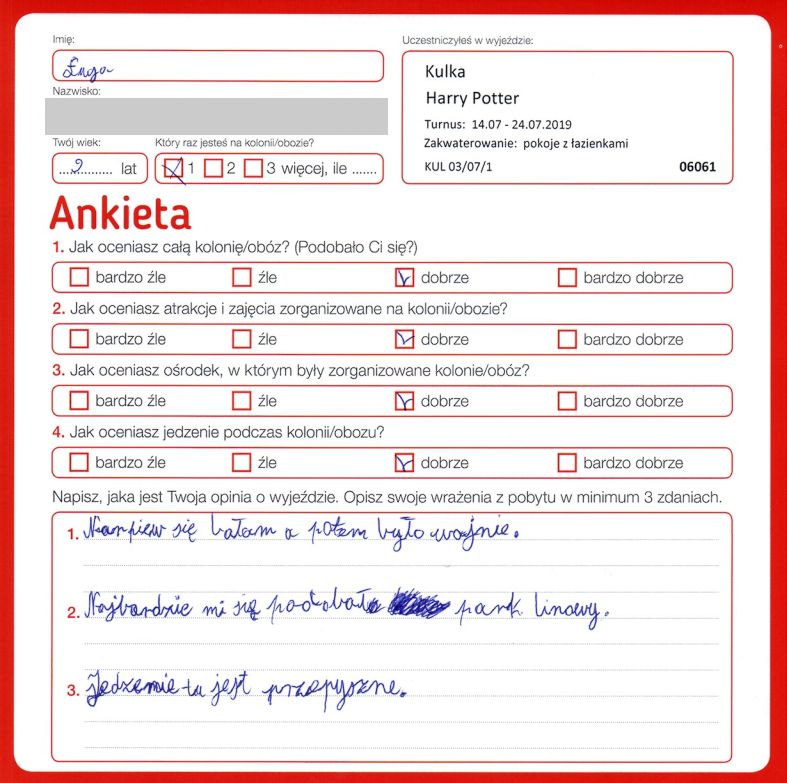 Imię:
Uczestniczyłeś w wyjeździe:
Kulka
Harry Potter
Nazwisko:
Turnus: 14.07 - 24.07.2019
Zakwaterowanie: pokoje z łazienkami
Twój wiek:
Który raz jesteś na kolonii/obozie?
...9... lat
1 2 3 więcej, ile .......
KUL 03/07/1 06061
Ankieta
1. Jak oceniasz całą kolonię/obóz? (Podobało Ci się?)
bardzo źle źle dobrze bardzo dobrze
2. Jak oceniasz atrakcje i zajęcia zorganizowane na kolonii/obozie?
bardzo źle źle dobrze bardzo dobrze
3. Jak oceniasz ośrodek, w którym były zorganizowane kolonie/obóz?
bardzo źle źle dobrze bardzo dobrze
4. Jak oceniasz jedzenie podczas kolonii/obozu?
bardzo źle źle dobrze bardzo dobrze
Napisz, jaka jest Twoja opinia o wyjeździe. Opisz swoje wrażenia z pobytu w minimum 3 zdaniach.
1. się bałam a potem było wajnie.
2. Najbardzie mi się podobał park linowy.
3. Jedzemie tu jest przepyszne.